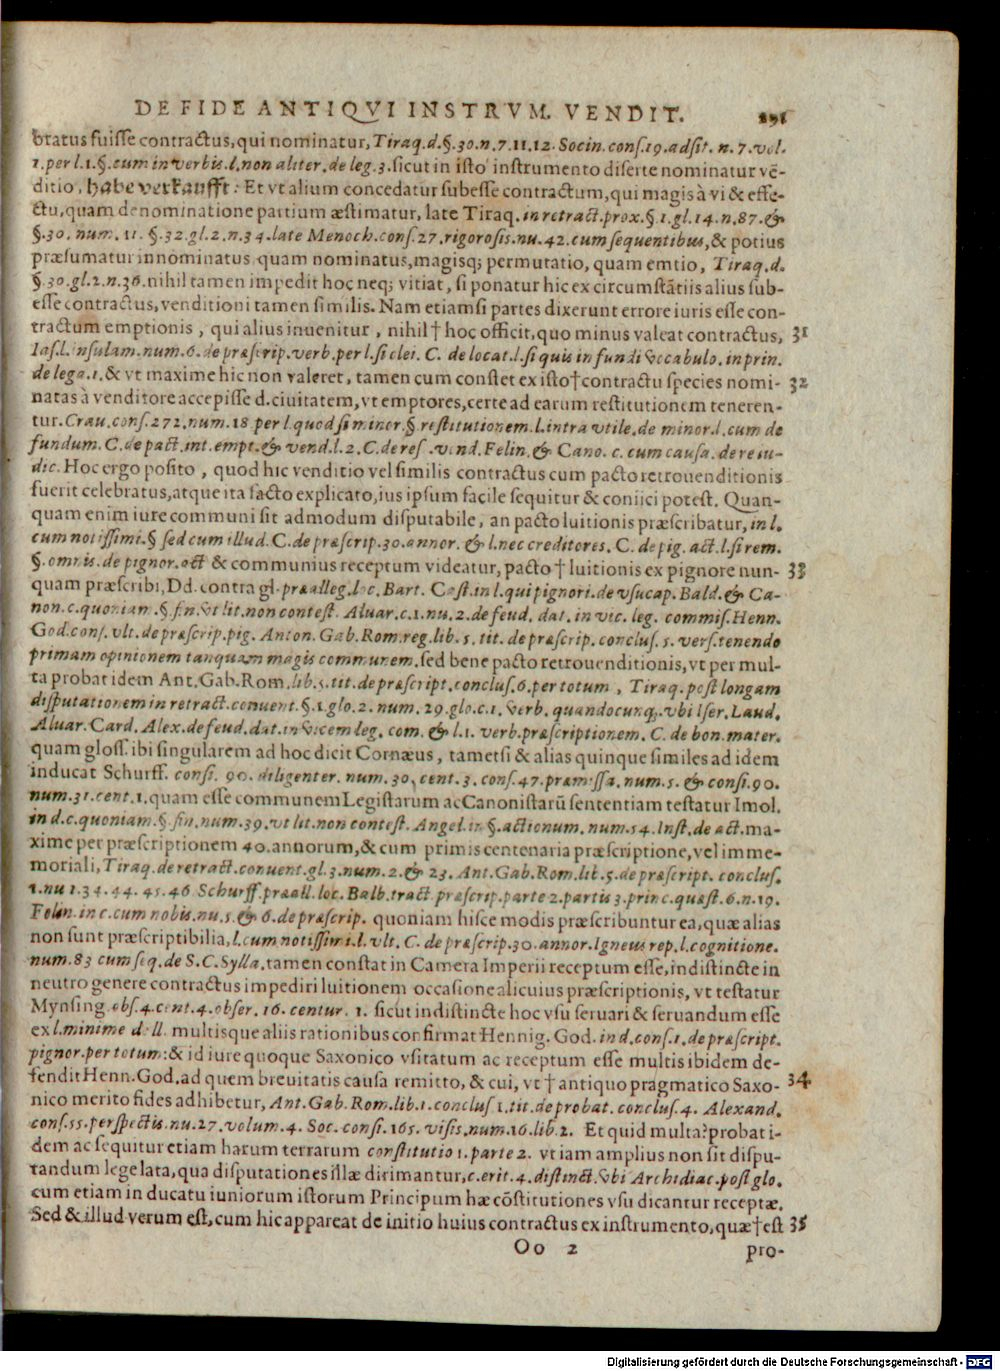 DE FIDE ANTIQVI INSTRVM. VENDIT. 291
bratus fuisse contractus, qui nominatur, Tiraq. d. §. 30. n. 7. 11. 12. Socin. cons. 19. adsit. n. 7. vol.
1. per l. 1. §. cum in verbis. l. non aliter. de leg. 3. sicut in isto instrumento diserte nominatur vē-
ditio, habe verkaufft: Et vt alium concedatur subesse contractum, qui magis à vi & effe-
ctu, quam denominatione partium æstimatur, late Tiraq. in retract. prox. §. 1. gl. 14. n. 87. &
§. 30. num. 11. §. 32. gl. 2. n. 34. late Menoch. cons. 27. rigorosis. nu. 42. cum sequentibus, & potius
præsumatur innominatus quam nominatus, magisq; permutatio, quam emtio, Tiraq. d.
§. 30. gl. 2. n. 36. nihil tamen impedit hoc neq; vitiat, si ponatur hic ex circumstātiis alius sub-
esse contractus, venditioni tamen similis. Nam etiamsi partes dixerunt errore iuris esse con-
tractum emptionis, qui alius inuenitur, nihil † hoc officit, quo minus valeat contractus, 31
Ias. l. insulam. num. 6. de præscrip. verb. per l. si clei. C. de locat. l. si quis in fundi vocabulo. in prin.
de lega. 1. & vt maxime hic non valeret, tamen cum constet ex isto † contractu species nomi- 32
natas à venditore accepisse d. ciuitatem, vt emptores, certe ad earum restitutionem teneren-
tur. Crau. cons. 272. num. 18 per l. quod si minor. § restitutionem. l. intra vtile. de minor. l. cum de
fundum. C. de pact. int. empt. & vend. l. 2. C. de res. vend. Felin. & Cano. c. cum causa. de re iu-
dic. Hoc ergo posito, quod hic venditio vel similis contractus cum pacto retrouenditionis
fuerit celebratus, atque ita facto explicato, ius ipsum facile sequitur & coniici potest. Quan-
quam enim iure communi sit admodum disputabile, an pacto luitionis præscribatur, in l.
cum notissimi. § sed cum illud. C. de præscrip. 30. annor. & l. nec creditores. C. de pig. act. l. si rem.
§. omnis. de pignor. act & communius receptum videatur, pacto † luitionis ex pignore nun- 33
quam præscribi, Dd. contra gl. præalleg. loc. Bart. Cast. in l. qui pignori. de vsucap. Bald. & Ca-
non. c. quoniam. §. fin. vt lit. non contest. Aluar. c. 1. nu. 2. de feud. dat. in vic. leg. commis. Henn.
God. cons. vlt. de præscrip. pig. Anton. Gab. Rom. reg. lib. 5. tit. de præscrip. conclus. 5. vers. tenendo
primam opinionem tanquam magis communem. sed bene pacto retrouenditionis, vt per mul-
ta probat idem Ant. Gab. Rom. lib. 5. tit. de præscript. conclus. 6. per totum, Tiraq. post longam
disputationem in retract. conuent. §. 1. glo. 2. num. 29. glo. c. 1. verb. quandocunq;. vbi Iser. Laud.
Aluar. Card. Alex. de feud. dat. in vicem leg. com. & l. 1. verb. præscriptionem. C. de bon. mater.
quam gloss. ibi singularem ad hoc dicit Cornæus, tametsi & alias quinque similes ad idem
inducat Schurff. consi. 90. diligenter. num. 30. cent. 3. cons. 47. præmissa. num. 5. & consi. 90.
num. 31. cent. 1. quam esse communem Legistarum ac Canonistarū sententiam testatur Imol.
in d. c. quoniam. §. fin. num. 39. vt lit. non contest. Angel. in §. actionum. num. 54. Inst. de act. ma-
xime per præscriptionem 40. annorum, & cum primis centenaria præscriptione, vel imme-
moriali, Tiraq. de retract. conuent. gl. 3. num. 2. & 23. Ant. Gab. Rom. lib. 5. de præscript. conclus.
1. nu 1. 34. 44. 45. 46 Schurff. præall. loc. Balb. tract. præscrip. parte 2. partis 3. princ. quæst. 6. n. 19.
Felin. in c. cum nobis. nu. 5. & 6. de præscrip. quoniam hisce modis præscribuntur ea, quæ alias
non sunt præscriptibilia, l. cum notissimi. l. vlt. C. de præscrip. 30. annor. Igneus rep. l. cognitione.
num. 83 cum seq. de S. C. Sylla. tamen constat in Camera Imperii receptum esse, indistincte in
neutro genere contractus impediri luitionem occasione alicuius præscriptionis, vt testatur
Mynsing. obs. 4. cent. 4. obser. 16. centur. 1. sicut indistincte hoc vsu seruari & seruandum esse
ex l. minime d. ll. multisque aliis rationibus confirmat Hennig. God. in d. cons. 1. de præscript.
pignor. per totum: & id iure quoque Saxonico vsitatum ac receptum esse multis ibidem de-
fendit Henn. God. ad quem breuitatis causa remitto, & cui, vt † antiquo pragmatico Saxo- 34
nico merito fides adhibetur, Ant. Gab. Rom. lib. 1. conclus 1. tit. de probat. conclus. 4. Alexand.
cons. 55. perspectis. nu. 27. volum. 4. Soc. consi. 165. visis. num. 16. lib. 2. Et quid multa? probat i-
dem ac sequitur etiam harum terrarum constitutio 1. parte 2. vt iam amplius non sit dispu-
tandum lege lata, qua disputationes illæ dirimantur, c. erit. 4. distinct. vbi Archidiac. post glo.
cum etiam in ducatu iuniorum istorum Principum hæ cōstitutiones vsu dicantur receptæ.
Sed & illud verum est, cum hic appareat de initio huius contractus ex instrumento, quæ † est 35
Oo 2 pro-
Digitalisierung gefördert durch die Deutsche Forschungsgemeinschaft - DFG